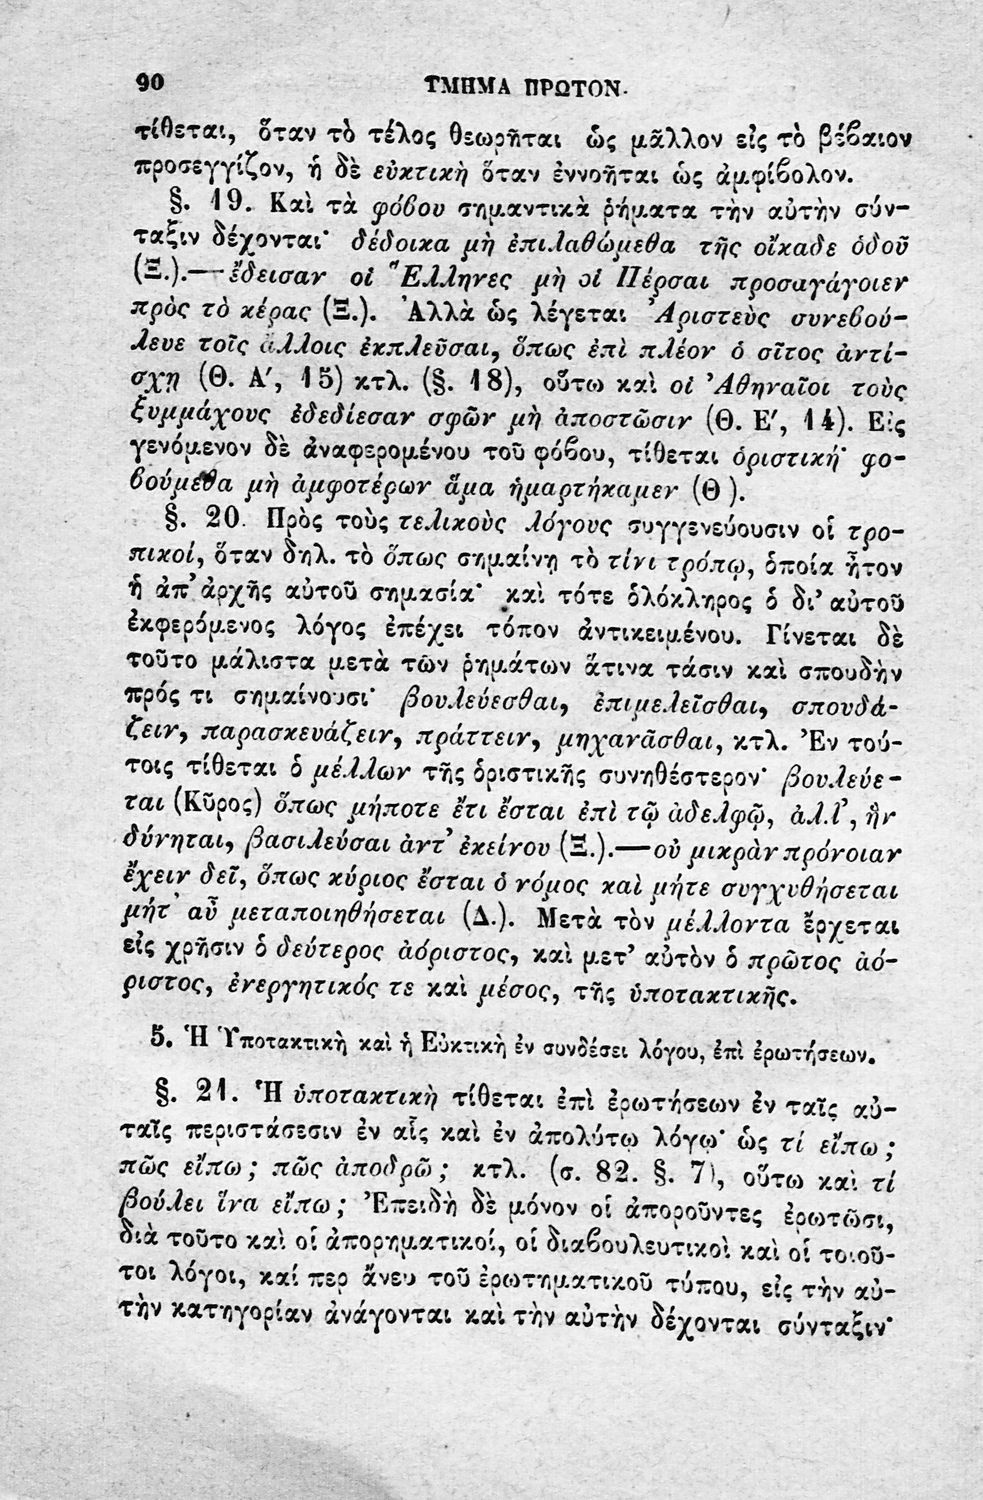 90 ΤΜΗΜΑ ΠΡΩΤΟΝ.
τίθεται, ὅταν τὸ τέλος θεωρῆται ὡς μᾶλλον εἰς τὸ βέβαιον
προσεγγίζον, ἡ δὲ εὐκτικὴ ὅταν ἐννοῆται ὡς ἀμφίβολον.
§. 19. Καὶ τὰ φόβου σημαντικὰ ῥήματα τὴν αὐτὴν σύν-
ταξιν δέχονται· δέδοικα μὴ ἐπιλαθώμεθα τῆς οἴκαδε ὁδοῦ
(Ξ.).—ἔδεισαν οἱ Ἕλληνες μὴ οἱ Πέρσαι προσαγάγοιεν
πρὸς τὸ κέρας (Ξ.). Ἀλλὰ ὡς λέγεται Ἀριστεὺς συνεβού-
λευε τοῖς ἄλλοις ἐκπλεῦσαι, ὅπως ἐπὶ πλέον ὁ σῖτος ἀντί-
σχῃ (Θ. Α′, 15) κτλ. (§. 18), οὕτω καὶ οἱ Ἀθηναῖοι τοὺς
ξυμμάχους ἐδεδίεσαν σφῶν μὴ ἀποστῶσιν (Θ. Ε′, 14). Εἰς
γενόμενον δὲ ἀναφερομένου τοῦ φόβου, τίθεται ὁριστική· φο-
βούμεθα μὴ ἀμφοτέρων ἅμα ἡμαρτήκαμεν (Θ ).
§. 20. Πρὸς τοὺς τελικοὺς λόγους συγγενεύουσιν οἱ τρο-
πικοί, ὅταν δηλ. τὸ ὅπως σημαίνῃ τὸ τίνι τρόπῳ, ὁποία ἦτον
ἡ ἀπ’ ἀρχῆς αὐτοῦ σημασία· καὶ τότε ὁλόκληρος ὁ δι’ αὐτοῦ
ἐκφερόμενος λόγος ἐπέχει τόπον ἀντικειμένου. Γίνεται δὲ
τοῦτο μάλιστα μετὰ τῶν ῥημάτων ἅτινα τάσιν καὶ σπουδὴν
πρός τι σημαίνουσι· βουλεύεσθαι, ἐπιμελεῖσθαι, σπουδά-
ζειν, παρασκευάζειν, πράττειν, μηχανᾶσθαι, κτλ. Ἐν τού-
τοις τίθεται ὁ μέλλων τῆς ὁριστικῆς συνηθέστερον· βουλεύε-
ται (Κῦρος) ὅπως μήποτε ἔτι ἔσται ἐπὶ τῷ ἀδελφῷ, ἀλλ’, ἢν
δύνηται, βασιλεύσαι ἀντ’ ἐκείνου (Ξ.).—οὐ μικρὰν πρόνοιαν
ἔχειν δεῖ, ὅπως κύριος ἔσται ὁ νόμος καὶ μήτε συγχυθήσεται
μήτ’ αὖ μεταποιηθήσεται (Δ.). Μετὰ τὸν μέλλοντα ἔρχεται
εἰς χρῆσιν ὁ δεύτερος ἀόριστος, καὶ μετ’ αὐτὸν ὁ πρῶτος ἀό-
ριστος, ἐνεργητικός τε καὶ μέσος, τῆς ὑποτακτικῆς.
5. Ἡ Ὑποτακτικὴ καὶ ἡ Εὐκτικὴ ἐν συνδέσει λόγου, ἐπὶ ἐρωτήσεων.
§. 21. Ἡ ὑποτακτικὴ τίθεται ἐπὶ ἐρωτήσεων ἐν ταῖς αὐ-
ταῖς περιστάσεσιν ἐν αἷς καὶ ἐν ἀπολύτῳ λόγῳ· ὡς τί εἴπω ;
πῶς εἴπω ; πῶς ἀποδρῶ ; κτλ. (σ. 82. §. 7), οὕτω καὶ τί
βούλει ἵνα εἴπω ; Ἐπειδὴ δὲ μόνον οἱ ἀποροῦντες ἐρωτῶσι,
διὰ τοῦτο καὶ οἱ ἀπορηματικοί, οἱ διαβουλευτικοὶ καὶ οἱ τοιοῦ-
τοι λόγοι, καί περ ἄνευ τοῦ ἐρωτηματικοῦ τύπου, εἰς τὴν αὐ-
τὴν κατηγορίαν ἀνάγονται καὶ τὴν αὐτὴν δέχονται σύνταξιν·